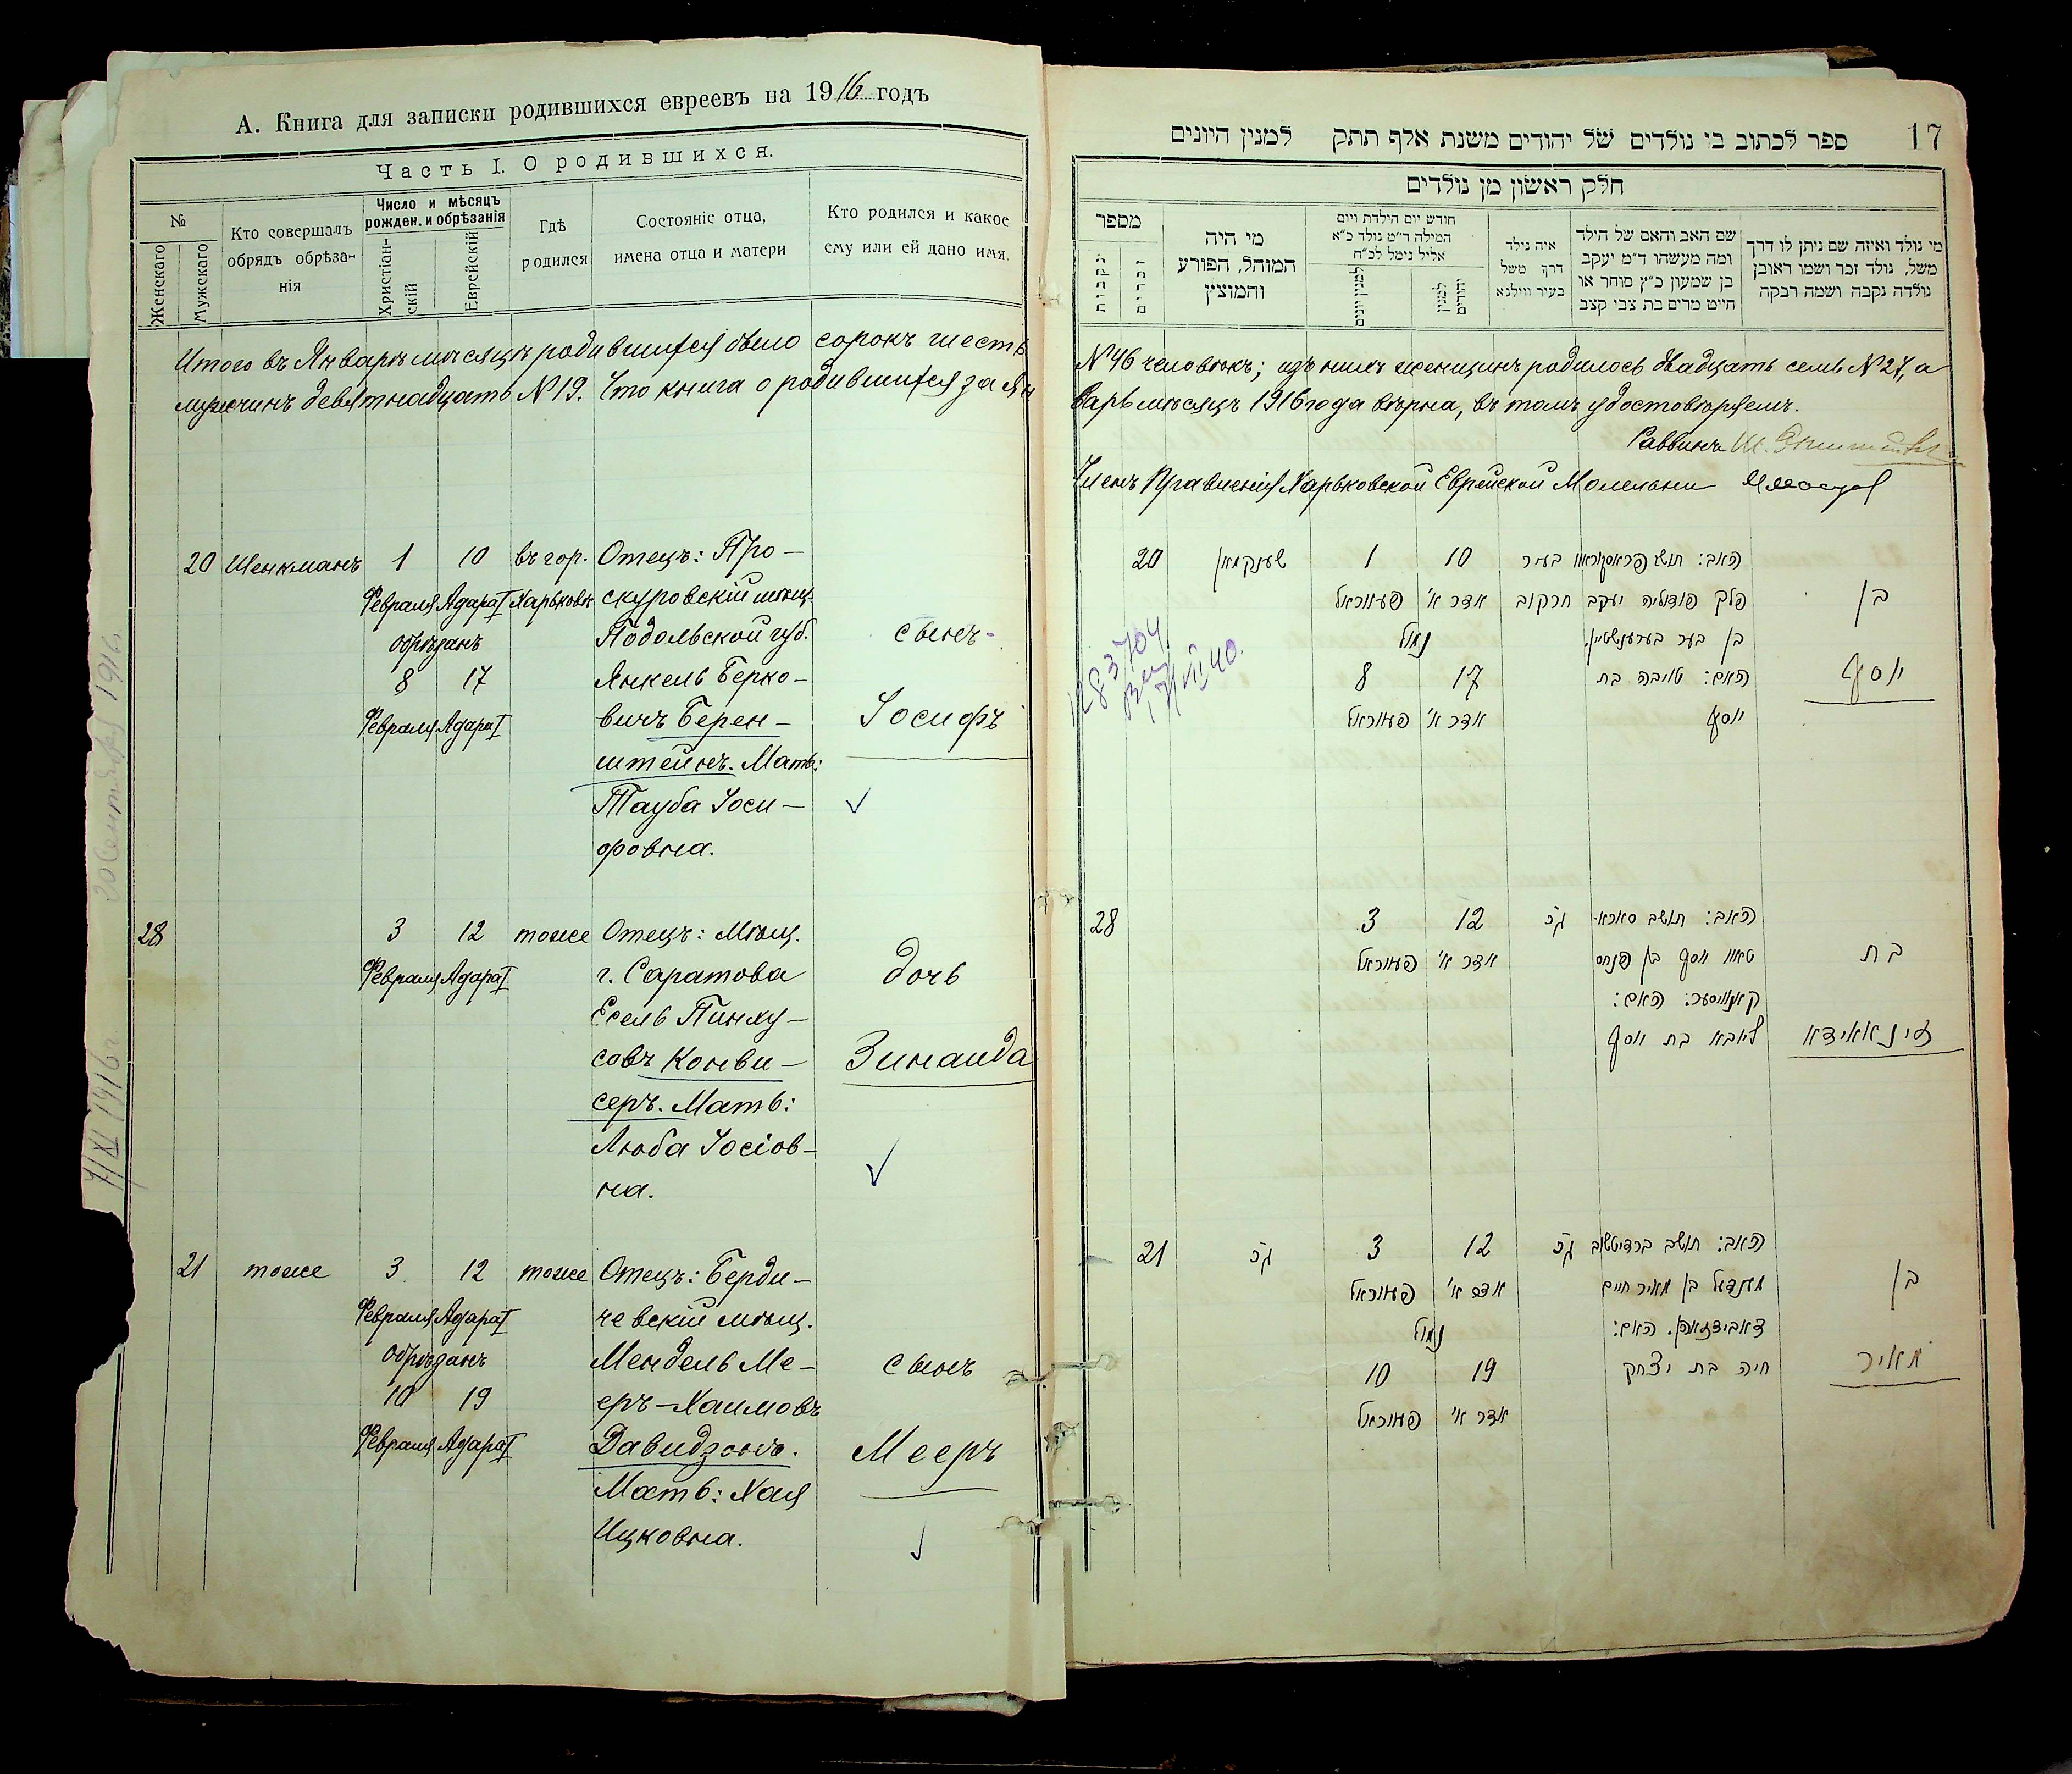 А. Книга для записки родившихся евреевъ на 1916 годъ
Часть I. О родившихся.
№
Женскаго
Мужскаго
Кто совершалъ
обрядъ обрѣза-
нія
Число и мѣсяцъ
рожден. и обрѣзанія
Христіан-
скій
Еврейскій
Гдѣ
родился
Состояніе отца,
имена отца и матери
Кто родился и какое
ему или ей дано имя.
Итого въ Январѣ мѣсяцѣ родившихся было сорокъ шесть
мужчинъ девятнадцать №19. Что книга о родившихся за Ян
20 Шенкманъ 1 10 въ гор. Отецъ: Про-
Февраля Адара I Харьковѣ скуровскій мѣщ.
обрѣзанъ Подольской губ. сынъ
8 17 Янкель Берко-
Февраля Адара I вичъ Берен- Іосифъ
штейнъ. Мать:
Тауба Іоси-
фовна.
28 3 12 тоже Отецъ: Мѣщ.
Февраля Адара I г. Саратова дочь
Есель Пинху-
совъ Конви- Зинаида
серъ. Мать:
Люба Іосіов-
на.
21 тоже 3 12 тоже Отецъ: Берди-
Февраля Адара I чевскій мѣщ.
обрѣзанъ Мендель Ме- сынъ
10 19 еръ-Хаимовъ
Февраля Адара I Давидзонъ. Мееръ
Мать: Хая
Ицковна.
20 Сентября 1916 г.
7/XI 1916 г
17
ספר לכתוב בו נולדים של יהודים משנת אלף תתק למנין היונים
חלק ראשון מן נולדים
מספר
נקבות
זכרים
מי היה
המוהל, הפורע
והמוצץ
חודש יום הילדת ויום
המילה ד״מ נולד כ״א
אליל נימל לכ״ח
למנין יונים
למנין יהודים
איה נילד
דרך משל
בעיר ווילנא
שם האב והאם של הילד
ומה מעשהו ד״מ יעקב
בן שמעון כ״ץ סוחר או
חייט מרים בת צבי קצב
מי נולד ואיזה שם ניתן לו דרך
משל, נולד זכר ושמו ראובן
נולדה נקבה ושמה רבקה
№46 человѣкъ; изъ нихъ женщинъ родилось двадцать семь №27, а
варь мѣсяцъ 1916 года вѣрна, въ томъ удостовѣряемъ.
Раввинъ
Членъ Правленія Харьковской Еврейской Молельни
20 שענקמאן 1 10 בעיר האב: תושב פראסקוראוו
פעווראל אדר א' חרקוב פלך פודוליה יעקב בן
נמול בן בער בערענשטיין.
8 17 האם: טויבה בת יוסף
פעווראל אדר א' יוסף
28 3 12 ג״כ האב: תושב סארא-
פעווראל אדר א' טאוו יוסף בן פנחס בת
קאנוויסער: האם:
ליובא בת יוסף זינאאידא
21 ג״כ 3 12 ג״כ האב: תושב ברדיטשוב
פעווראל אדר א' מענדעל בן מאיר חיים בן
נמול דאבידזאהן. האם:
10 19 חיה בת יצחק מאיר
פעווראל אדר א'